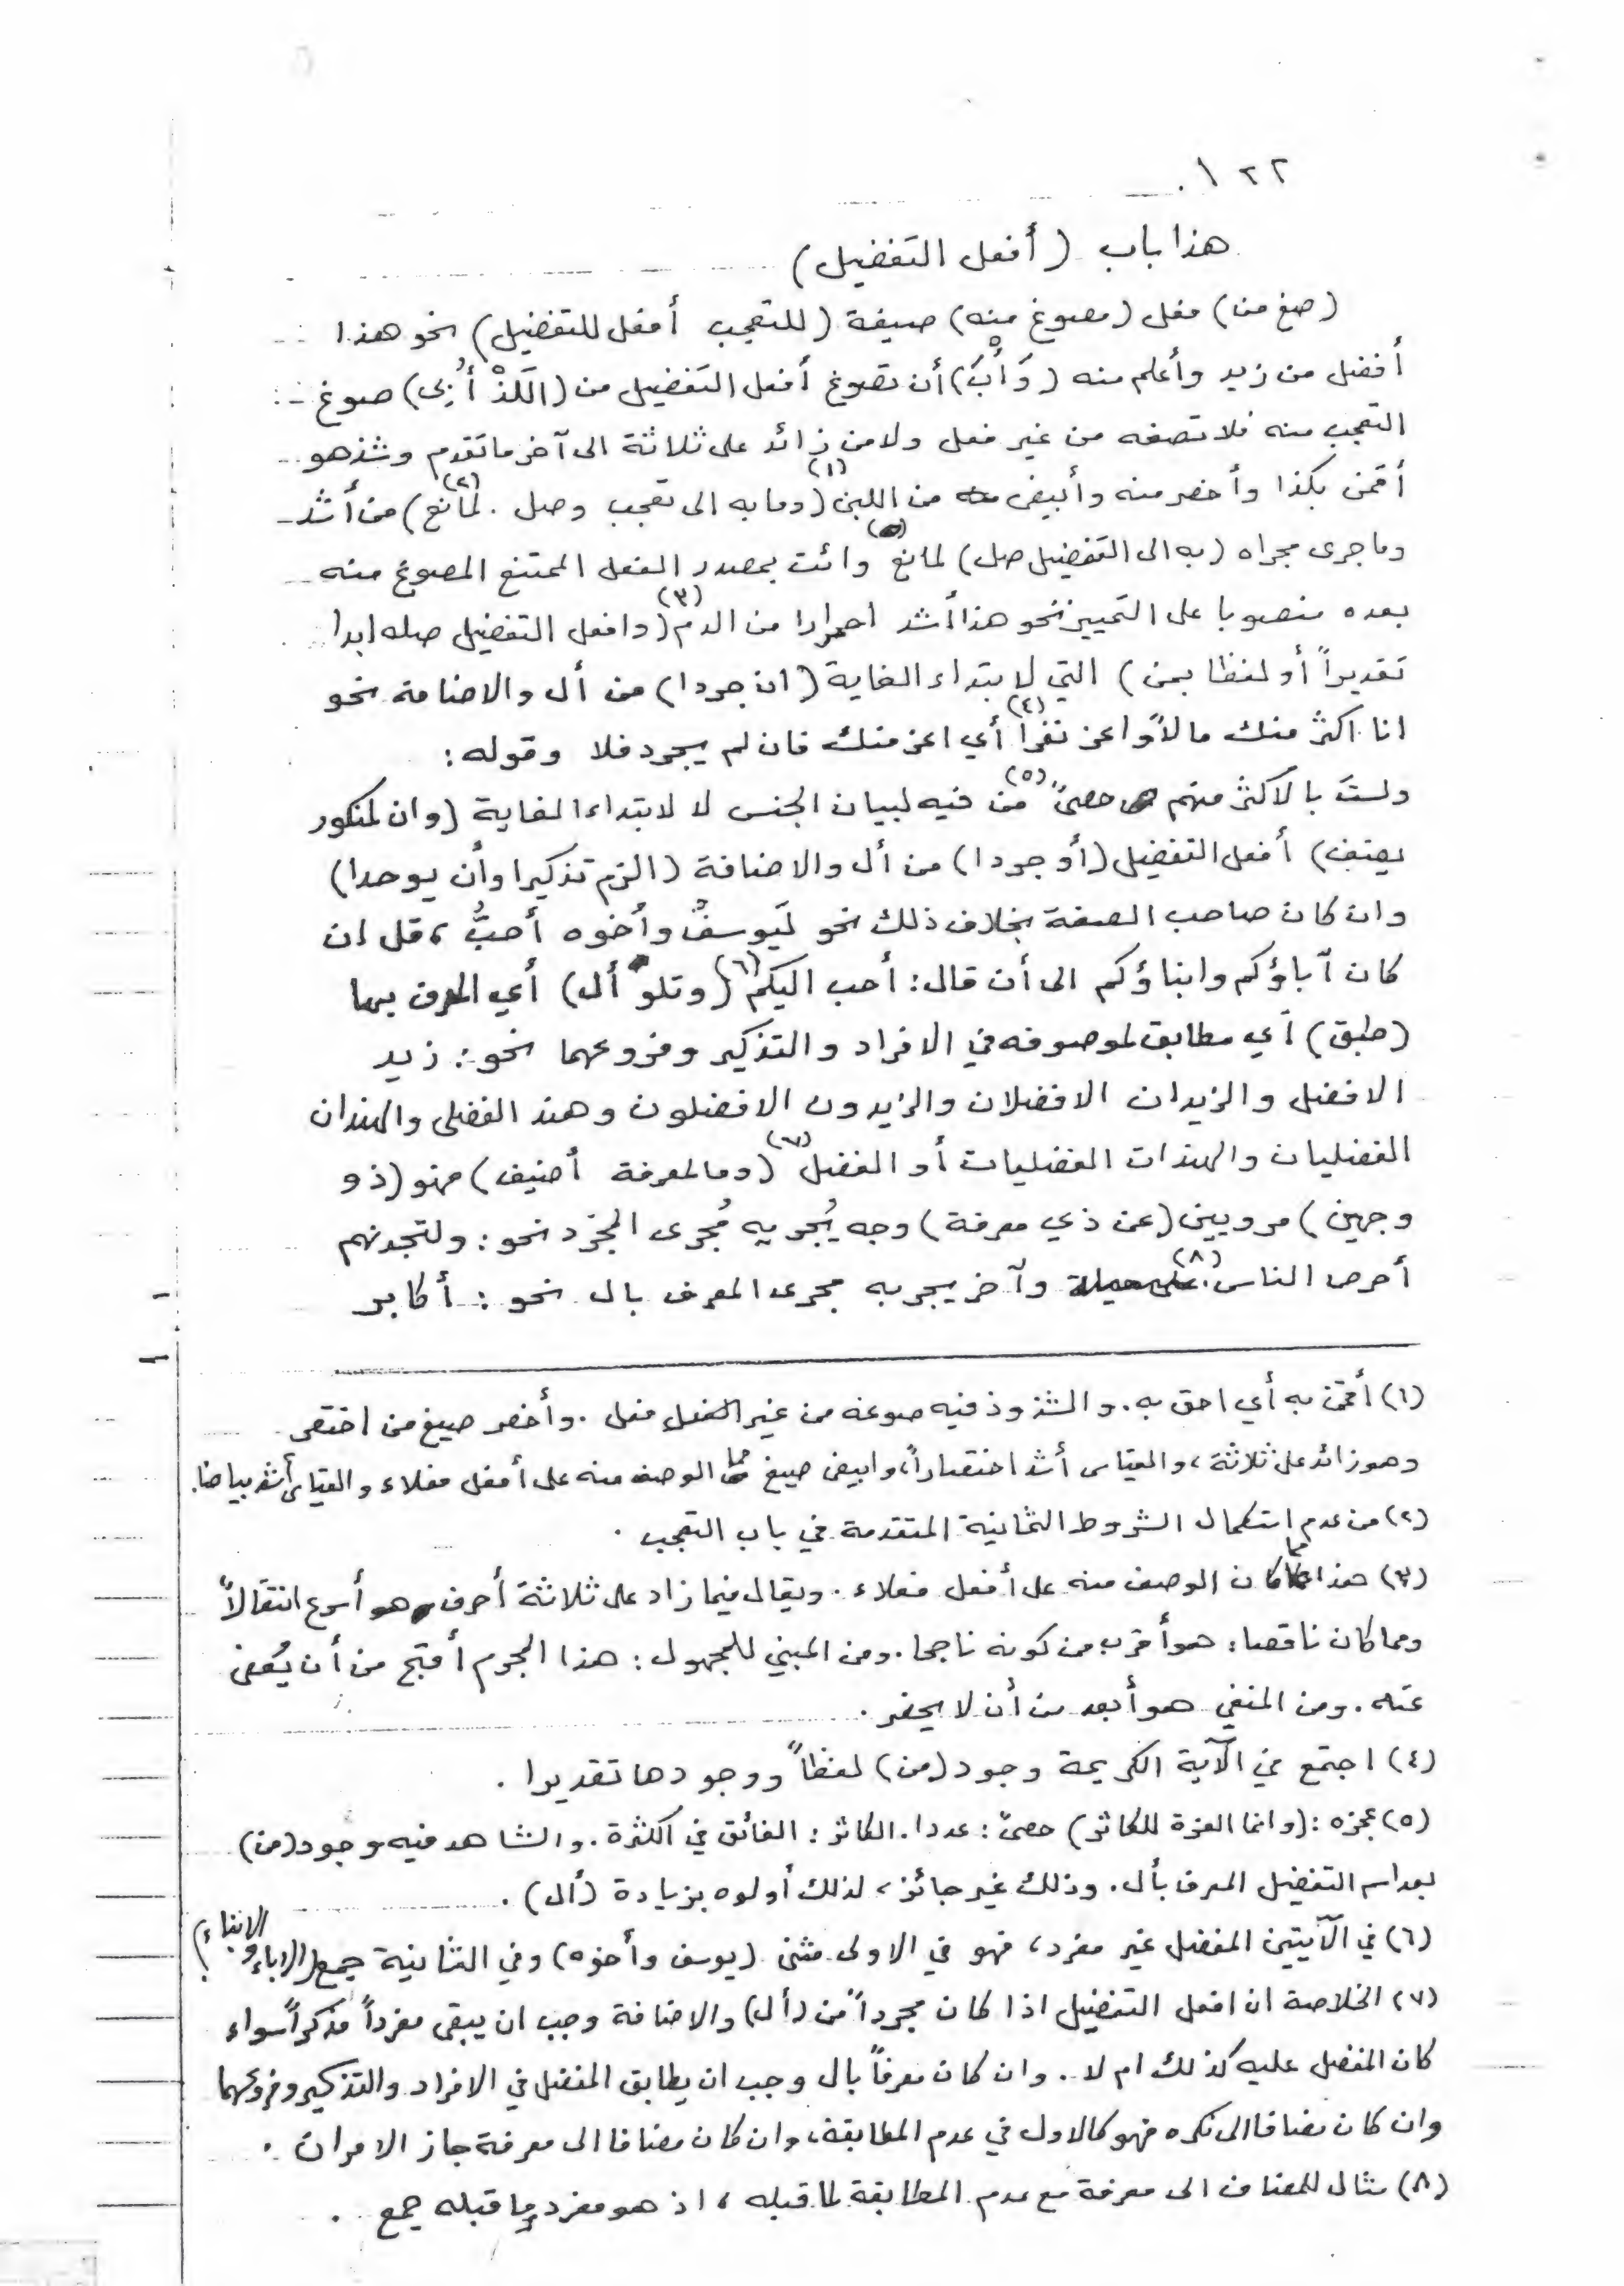 ١٢٢
هذا باب (أفعل التفضيل)
(صغ من) فعل (مصوغ منه) صيغة (للتعجب أفعل للتفضيل) نحو هذا
أفضل من زيد وأعلم منه (وَأْبَ) أن تصوغ أفعل التفضيل من (اللَذْ أُبى) صوغ
التعجب منه فلا تصغه من غير فعل ولا من زائد على ثلاثة الى آخر ما تقدم وشذ هو
أقمن بكذا وأخصر منه وأبيض من اللبن (١) (وما به الى تعجب وصل . لمانع) (٢) من أشد
وما جرى مجراه (به الى التفضيل صل) لمانع وائت بمصدر الفعل الممتنع المصوغ منه
بعده منصوبا على التمييز نحو هذا أشد احمرارا من الدم (٣) (وافعل التفضيل صله ابدا
تقديراً أو لفظا بمن) التي لابتداء الغاية (ان جردا) من أل والاضافة نحو
انا اكثر منك مالاً واعز نفرا (٤) أي اعز منك فان لم يجرد فلا وقوله :
ولستَ بالاكثر منهم حصىً (٥) من فيه لبيان الجنس لا لابتداء الغاية (وان لمنكور
يضف) أفعل التفضيل (أو جردا) من أل والاضافة (الزم تذكيرا وأن يوحدا)
وان كان صاحب الصفة بخلاف ذلك نحو لَيوسفُ وأخوه أحبُّ ، قل ان
كان آباؤكم وابناؤكم الى أن قال : أحب اليكم (٦) (وتلو أل) أي المعرف بها
(طبق) أي مطابق لموصوفه في الافراد والتذكير وفروعهما نحو : زيد
الافضل والزيدان الافضلان والزيدون الافضلون وهند الفضلى والهندان
الفضليان والهندات الفضليات أو الفضل (٧) (وما لمعرفة أضيف) فهو (ذو
وجهين) مرويين (عن ذي معرفة) وجه يُجريه مُجرى المجرد نحو : ولتجدنهم
أحرص الناس (٨) . وآخر يجريه مجرى المعرف بال نحو : أكابر
(١) أقمن به أي احق به . والشذوذ فيه صوغه من غير فعل . وأخصر صيغ من اختصر
وهو زائد على ثلاثة ، والقياس أشد اختصاراً ، وابيض صيغ مما الوصف منه على أفعل فعلاء والقياس أشد بياضا .
(٢) من عدم استكمال الشروط الثمانية المتقدمة في باب التعجب .
(٣) هذا مما كان الوصف منه على أفعل فعلاء . ويقال فيما زاد على ثلاثة أحرف هو أسرع انتقالاً
ومما كان ناقصا : هو أقرب من كونه ناجحا . ومن المبني للمجهول : هذا المجرم أقبح من أن يُعفى
عنه . ومن المنفي هو أبعد من أن لا يحضر .
(٤) اجتمع في الآية الكريمة وجود (من) لفظاً ووجودها تقديرا .
(٥) عجزه : (وانما العزة للكاثر) حصىً : عددا . الكاثر : الفائق في الكثرة . والشاهد فيه وجود (من)
بعد اسم التفضيل المعرف بأل . وذلك غير جائز ، لذلك أولوه بزيادة (أل) .
(٦) في الآيتين المفضل غير مفرد ، فهو في الاولى مثنى (يوسف وأخوه) وفي الثانية جمع (الاباء و الابناء)
(٧) الخلاصة ان افعل التفضيل اذا كان مجرداً من (أل) والاضافة وجب ان يبقى مفرداً مذكراً سواء
كان المفضل عليه كذلك ام لا . وان كان معرفاً بال وجب ان يطابق المفضل في الافراد والتذكير وفروعهما
وان كان مضافا الى نكره فهو كالاول في عدم المطابقة ، وان كان مضافا الى معرفة جاز الامران .
(٨) مثال للمضاف الى معرفة مع عدم المطابقة لما قبله ، اذ هو مفرد وما قبله جمع .